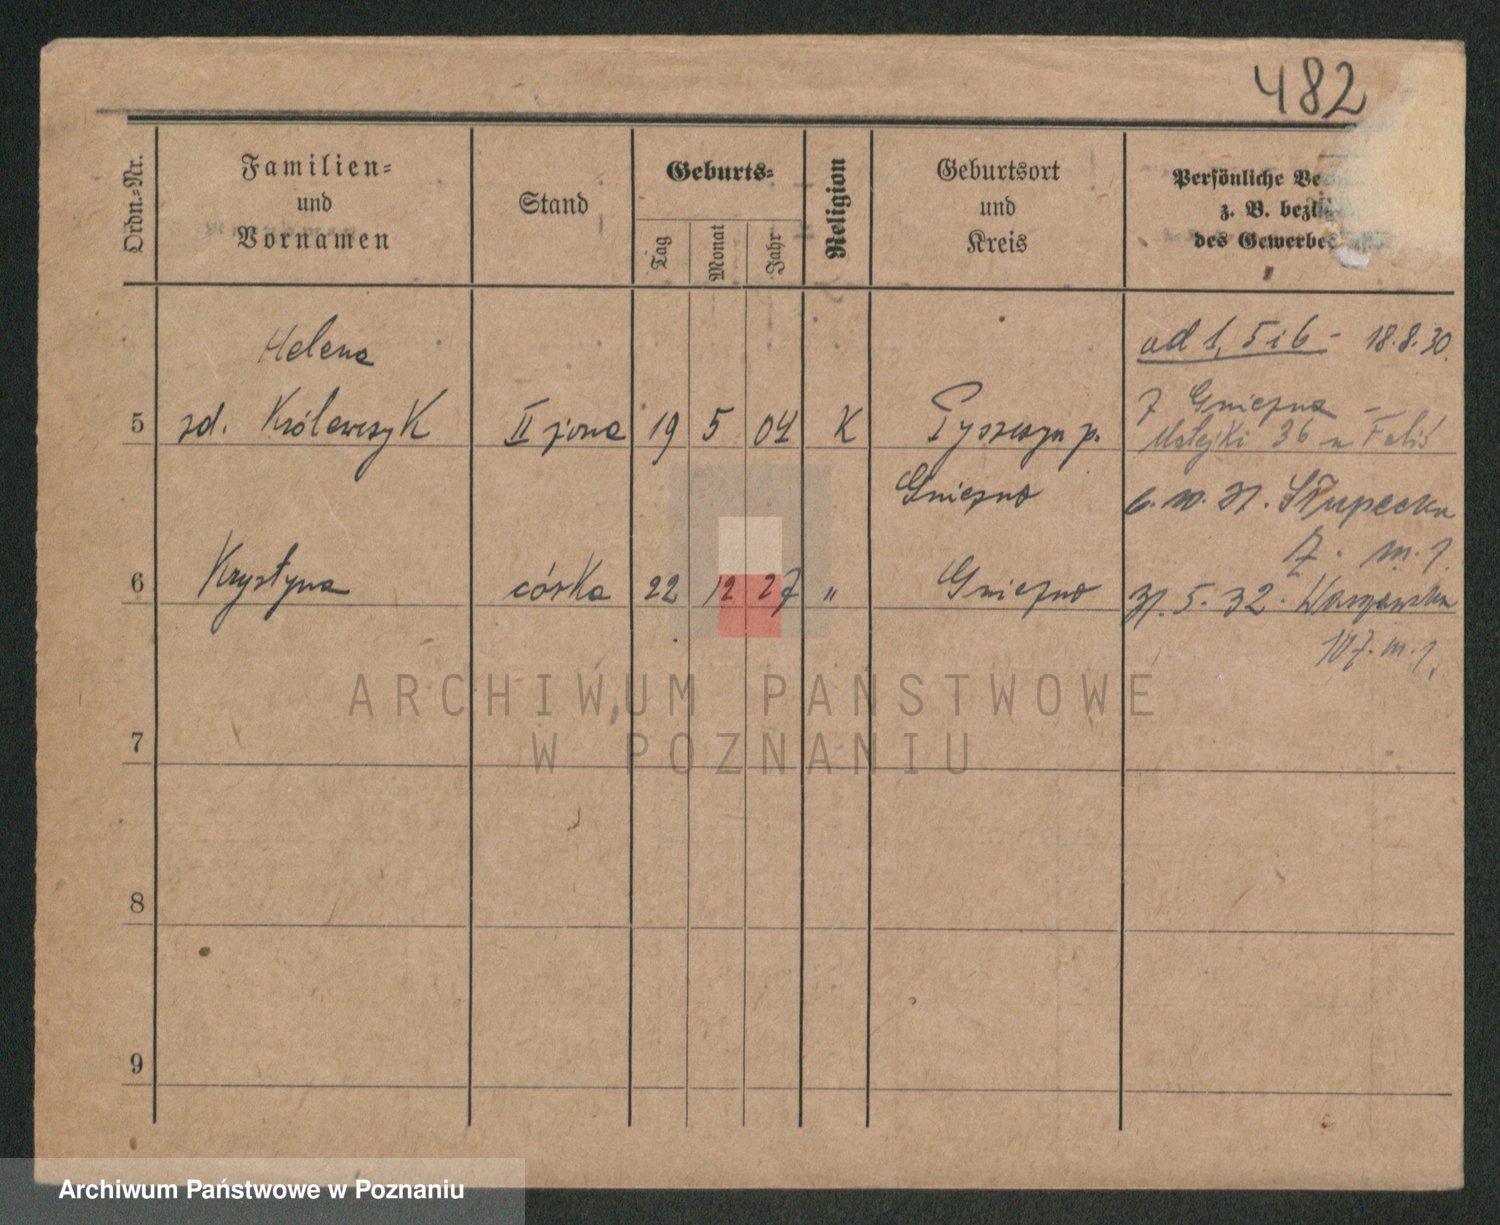 482
Ordn.-Nr.
Familien-
und
Vornamen
Stand
Geburts-
Tag
Monat
Jahr
Religion
Geburtsort
und
Kreis
Persönliche Ve
z. B. bezü
des Gewerbe
od 1, 5 i 6 - 18.8.30.
Helena
5 zd. Królewczyk II żona 19 5 04 K p.
Gniezno
z Gniezna -
Matejki 36 u
6.10.31. Słupecka
7. m. 1
6 Krystyna córka 22 12 27 " Gniezno
31.5.32. Warszawska
107. m. 1.
ARCHIWUM PAŃSTWOWE
W POZNANIU
7
8
9
Archiwum Państwowe w Poznaniu